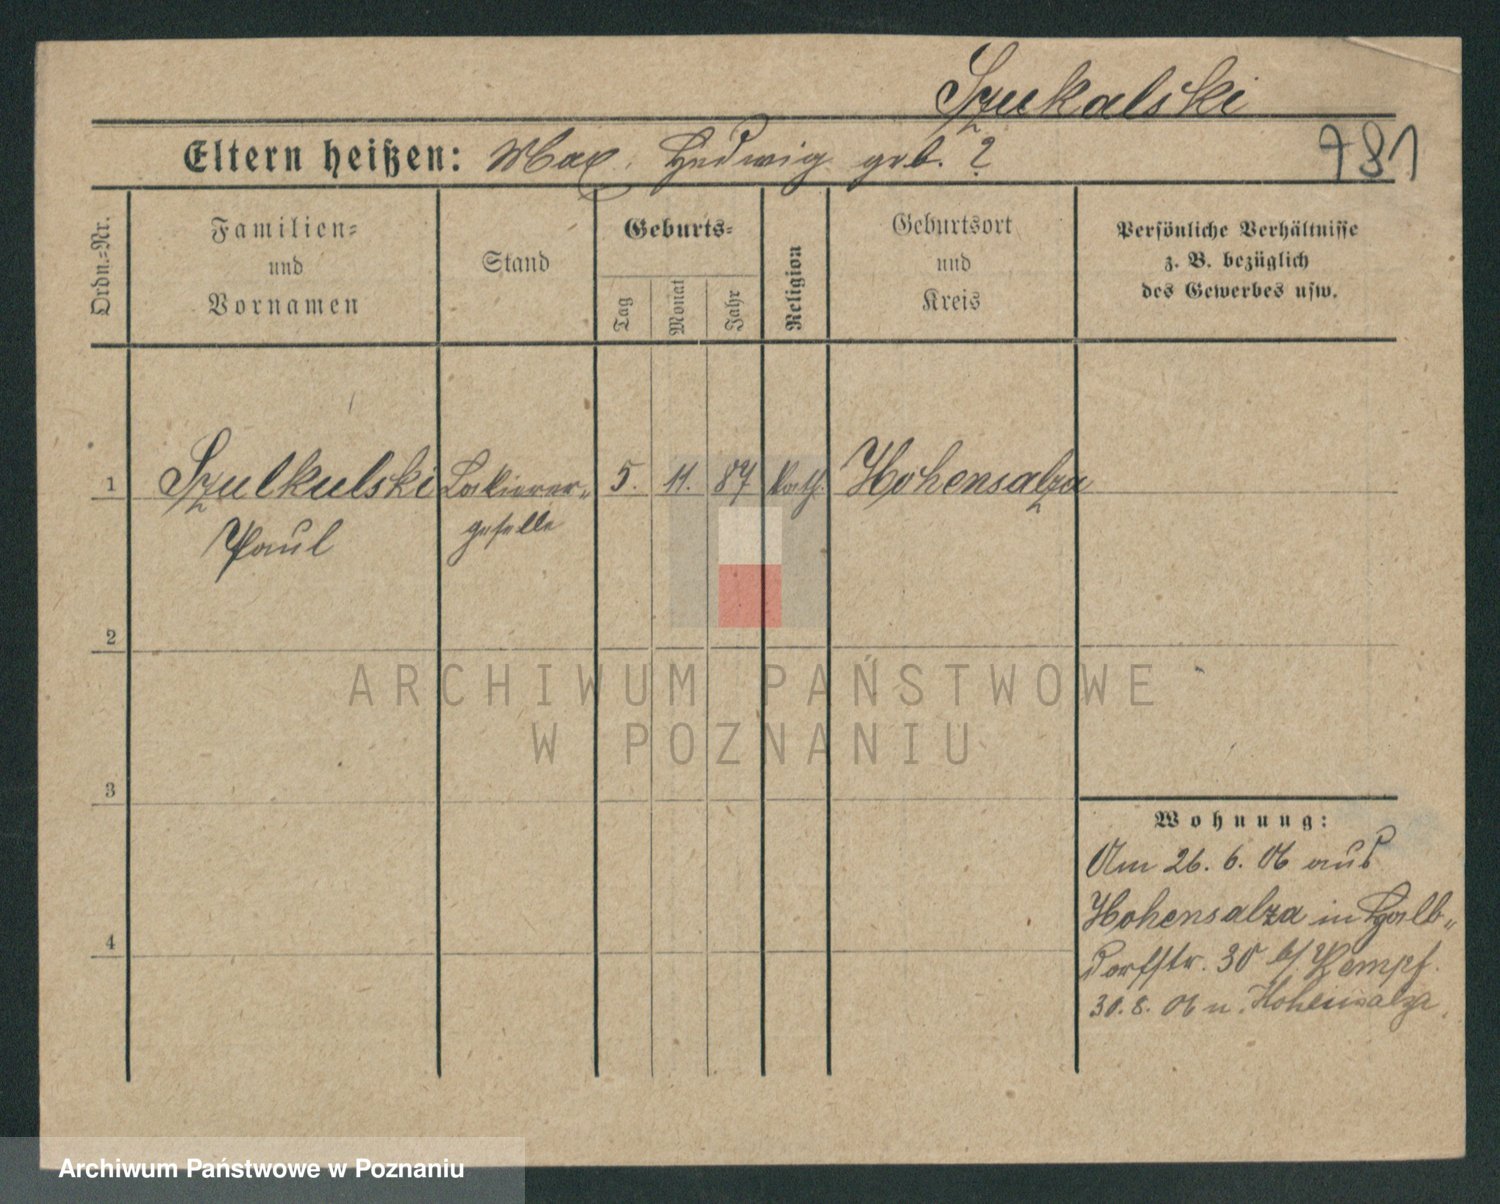 Szukalski
781
Eltern heißen: Max, Hedwig geb. ?
Ordn.-Nr.
Familien-
und
Vornamen
Stand
Geburts-
Tag
Monat
Jahr
Religion
Geburtsort
und
Kreis
Persönliche Verhältnisse
z. B. bezüglich
des Gewerbes usw.
1 Szulkulski Lakierer- 5. 11. 87 kath. Hohensalza
Paul geselle
2
3
4
Wohnung:
Am 26. 6. 06 aus
Hohensalza in Halb-
dorfstr. 30 b/ Kempf.
30. 8. 06 n. Hohensalza.
ARCHIWUM PAŃSTWOWE
W POZNANIU
Archiwum Państwowe w Poznaniu